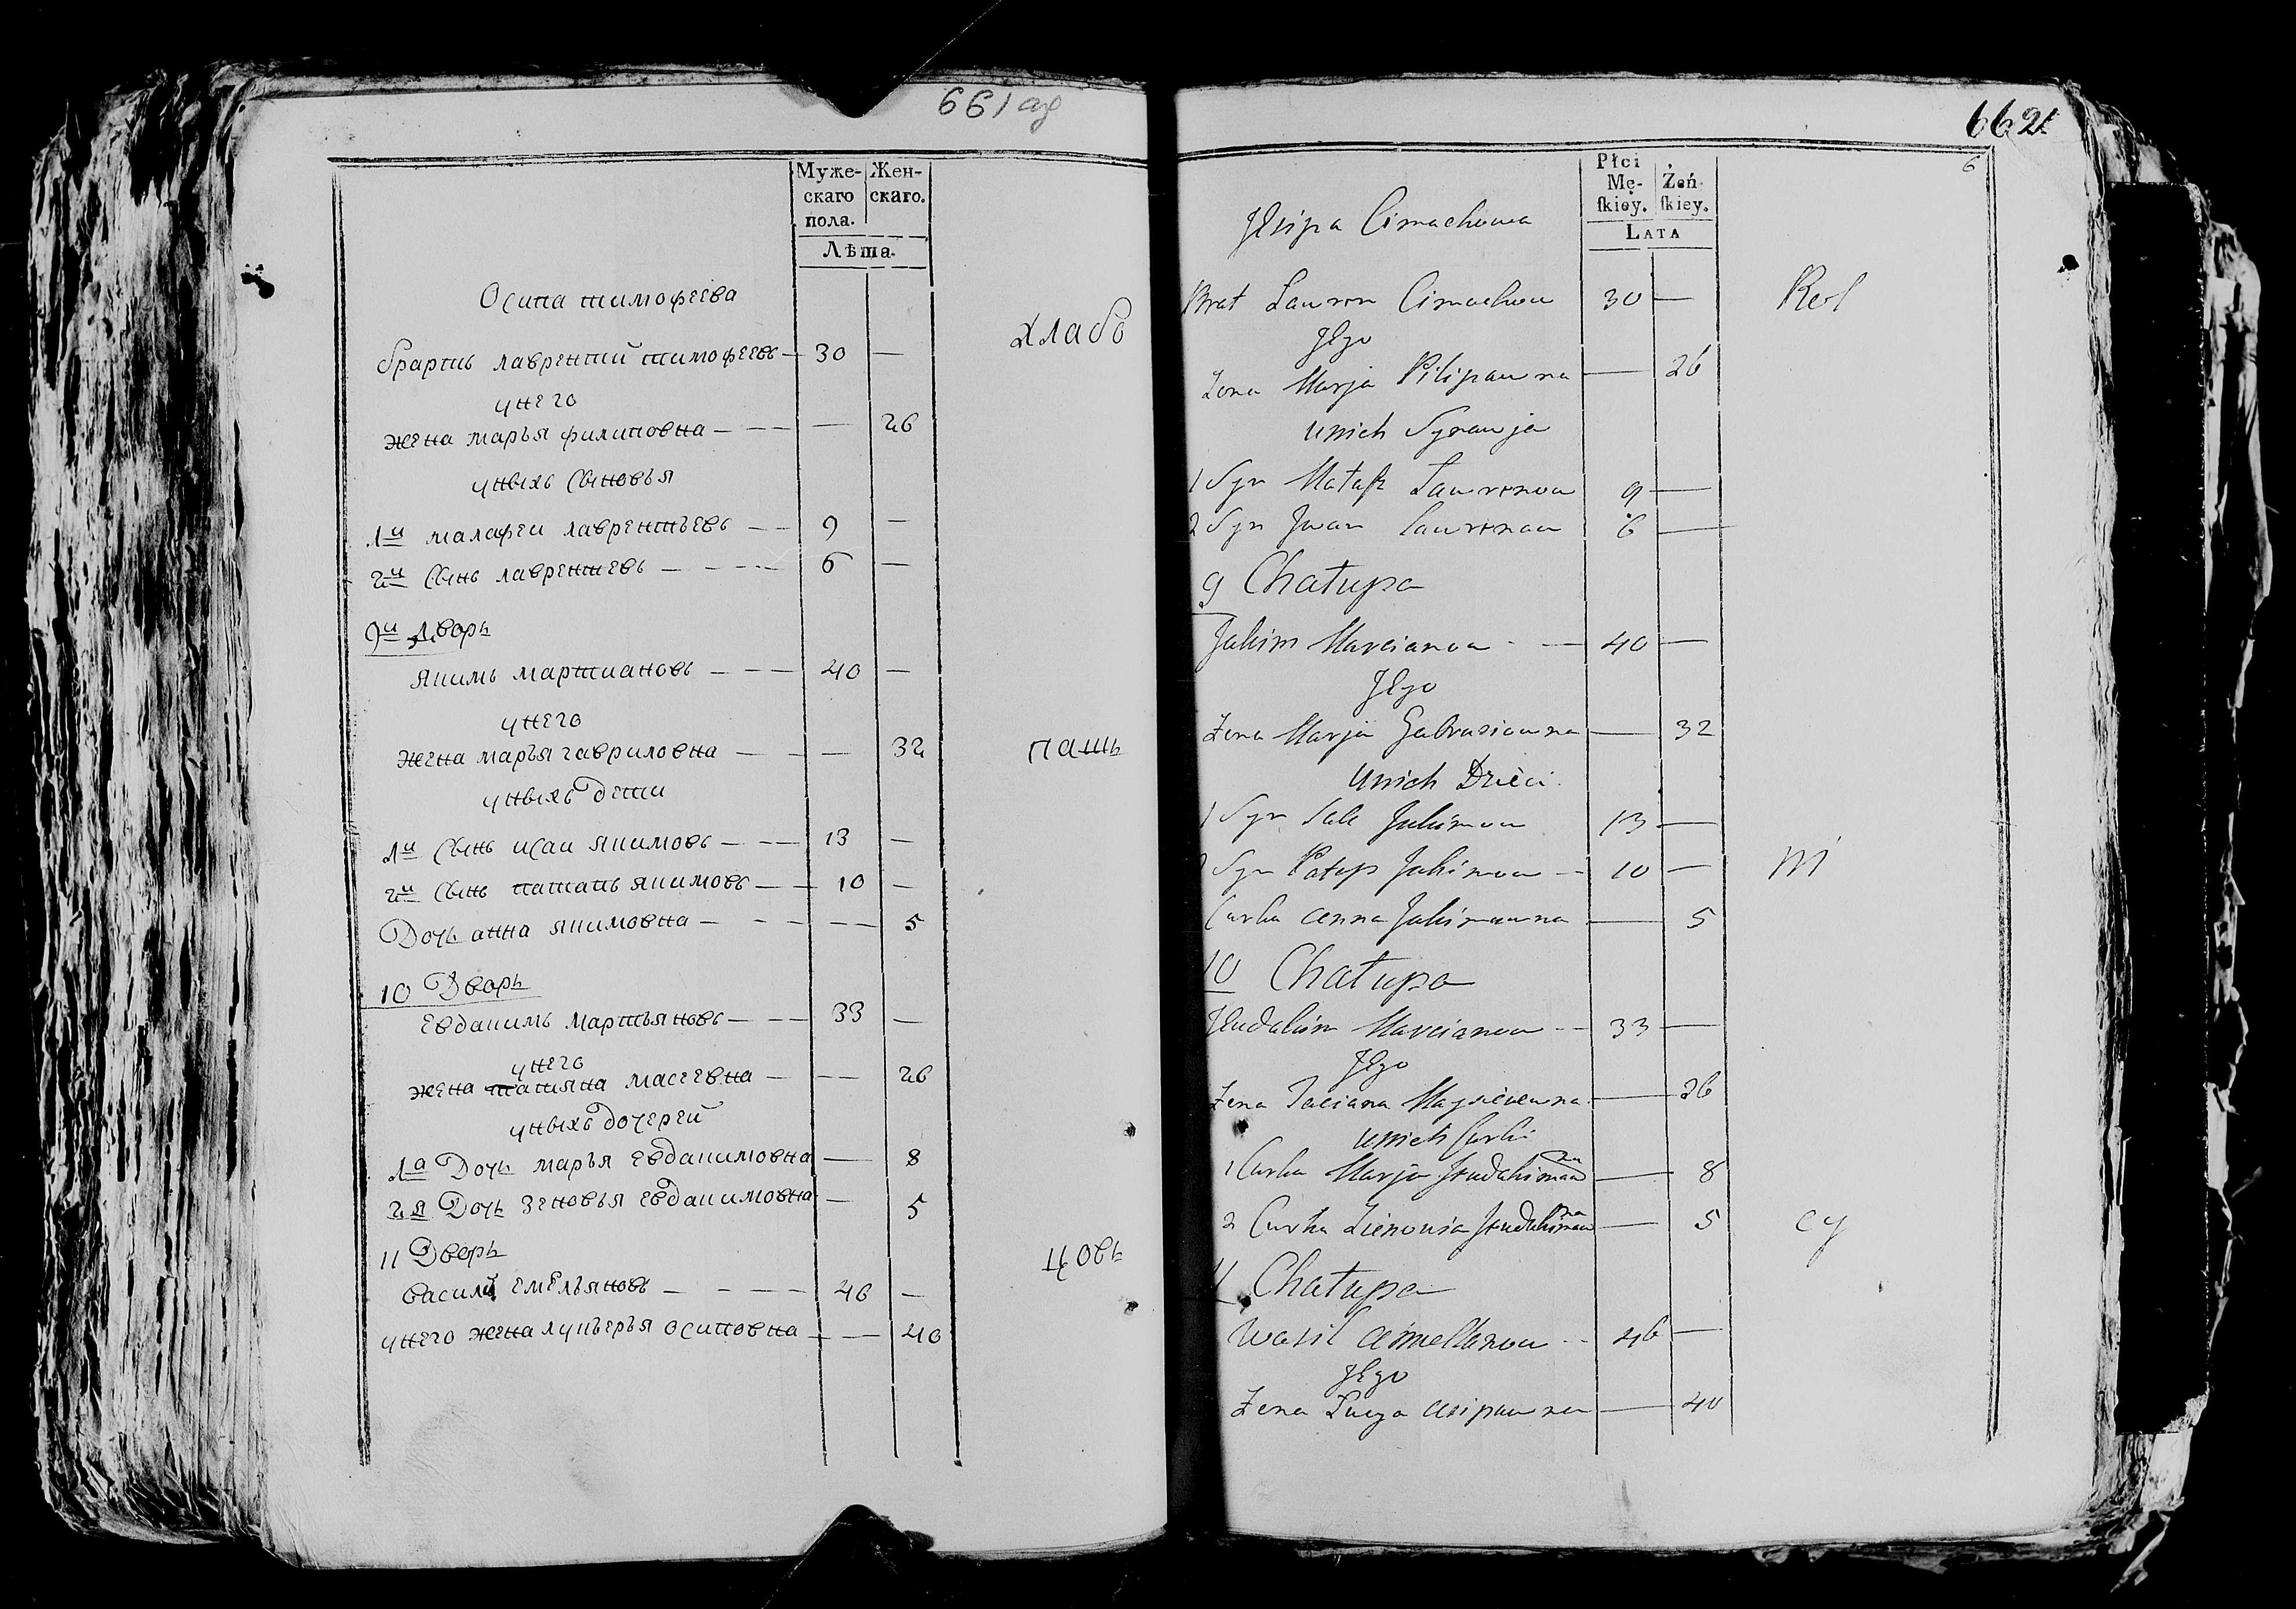 661 об
Муже-
скаго
пола.
Жен-
скаго.
Лѣта.
Осипа тимофеева
братъ лаврентий тимофеевъ — 30 —
унего
жена марья филиповна — — 26
уныхъ сыновья
1й малафеи лаврентьевъ — 9 —
2й сынъ лаврентевъ — 6 —
9й дворъ
якимъ мартиановъ — 40 —
унего
жена марья гавриловна — — 32
уныхъ дети
1й сынъ исаи якимовъ — 13 —
2й сынъ патапъ якимовъ — 10 —
Дочь анна якимовна — — 5
10 Дворъ
евдакимъ мартьяновъ — 33 —
унего
жена татяна масеевна — — 26
уныхъ дочерей
1а Дочь марья евдакимовна — 8
2я Дочь зеновья евдакимовна — 5
11 Дворъ
василй емельяновъ — 46 —
унего жена лукерья осиповна — — 40
хлабо
пашъ
цовъ
662
6
Płci
Mę-
ſkiey.
Żeń
ſkiey.
Lata
Jesipa Cimachowa
Brat Lauren Cimachou 30 —
Jego
Zona Marja Pilipauna — 26
unich Synauja
1 Syn Matafe Laurenou 9 —
2 Syn Jwan Laurenau 6 —
9 Chatupa
Jakim Marcianou — 40 —
Jego
Zena Marja Gabrusiauna — 32
unich Dzieci
1 Syn Jakimou 13 —
2 Syn Patap Jakimou — 10 —
Curka anna Jakimauna — 5
10 Chatupa
Jeudakim Marcianou — 33 —
Jego
Zena Taciana Maysieieuna — 26
unich Curki
1 Curka Marja Jeudakimauna — 8
2 Curka Zienouia Jeudakimauna — 5
11 Chatupa
Wasil amellanou — 46 —
Jego
Zena asipauna — 40
Rol
ni
cy